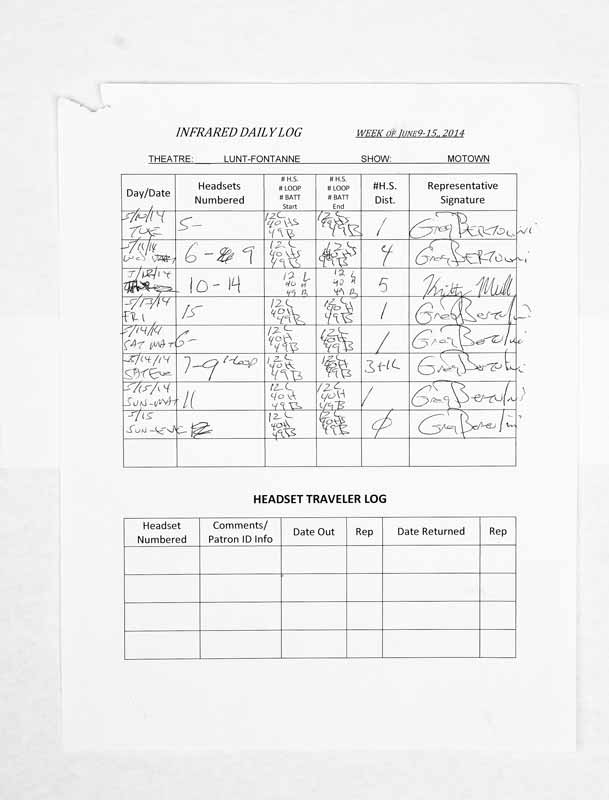 INFRARED DAILY LOG WEEK OF JUNE9-15,, 2014
THEATRE: LUNT-FONTANNE SHOW: MOTOWN
Day/Date
Headsets
Numbered
# H.S.
# LOOP
# BATT
Start
# H.S.
# LOOP
# BATT
End
#H.S.
Dist.
Representative
Signature
5/10/14
TUE
5-
12 L
40 HS
49 B
12 L
49 B
1
Greg BERTOLINI
5/11/14
6 - 9
12 L
40 HS
49 B
12 L
49 B
4
Greg BERTOLINI
10 - 14
12 L
40 H
49 B
12 L
40 H
49 B
5
5/13/14
FRI
15
12 L
40 H
49 B
12 L
40 H
49 B
1
Greg Bertolini
5/14/14
SAT MAT
6-
12 L
40 H
49 B
12 L
40 H
49 B
1
Greg Bertolini
5/14/14
SAT EVE
7-9 1-Loop
12 L
40 H
49 B
12 L
49 B
3+1L
Greg Bertolini
5/15/14
SUN-MAT
11
12 L
40 H
49 B
12 L
40 H
49 B
1
Greg Bertolini
5/15
SUN-EVE
12 L
40 H
49 B
12 L
40 H
49 B
Ø
Greg Bertolini
HEADSET TRAVELER LOG
Headset
Numbered
Comments/
Patron ID Info
Date Out
Rep
Date Returned
Rep